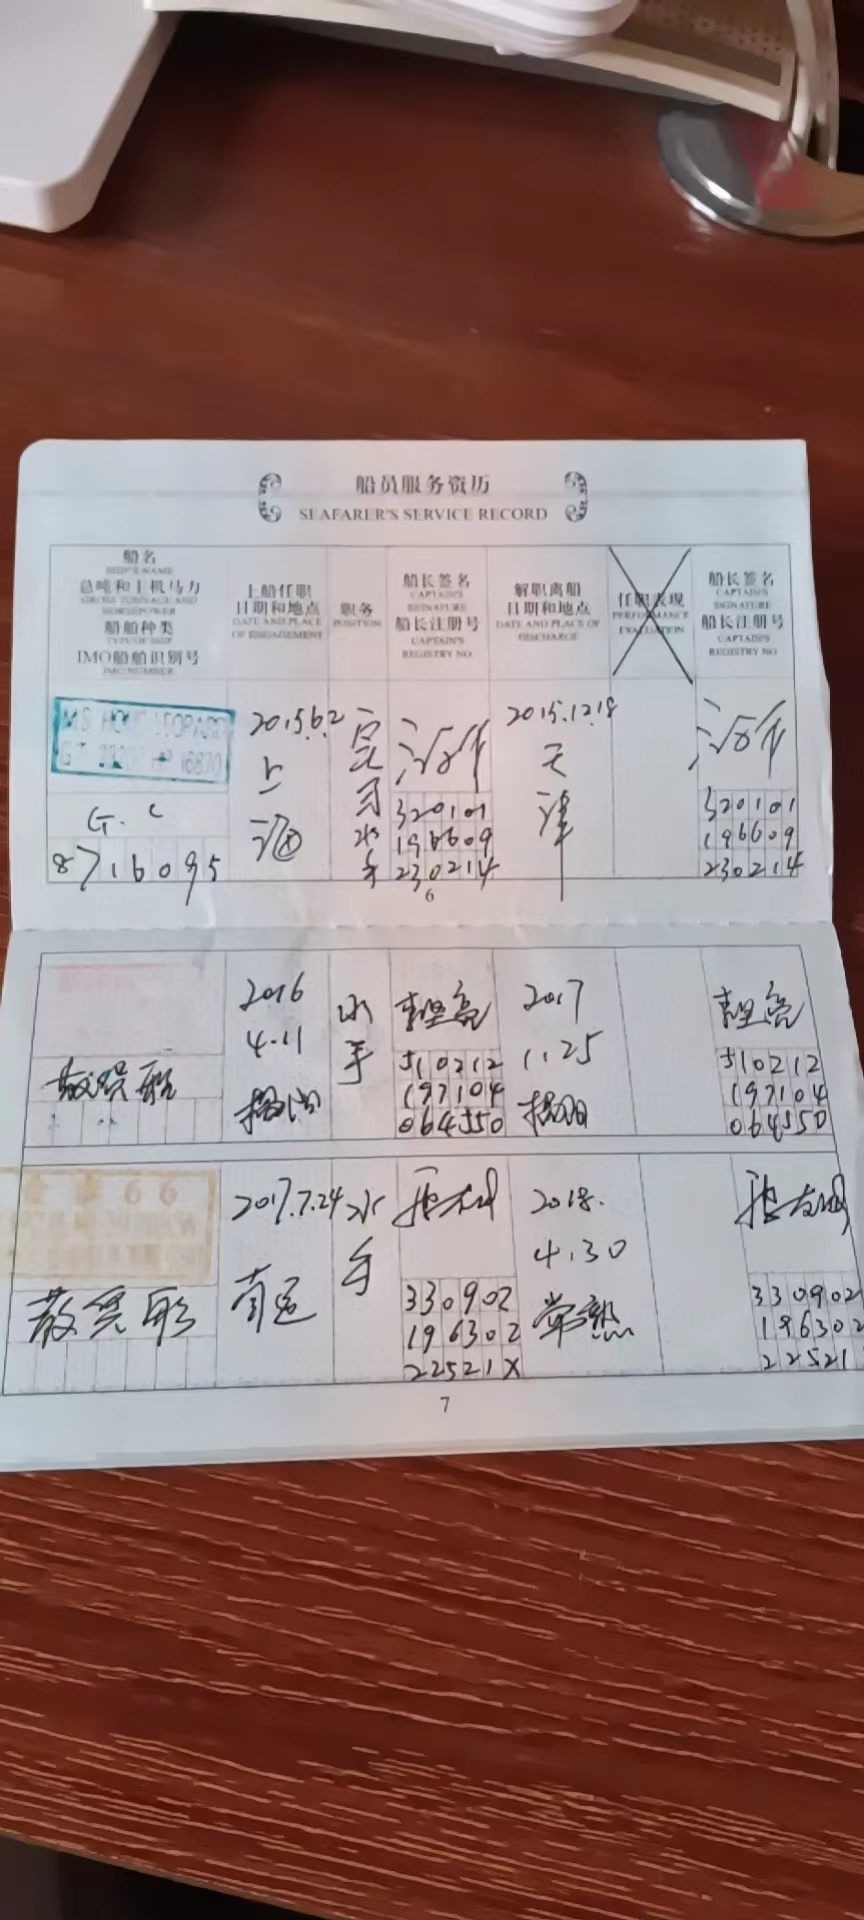 船员服务资历
SEAFARER'S SERVICE RECORD
船名
SHIP'S NAME
总吨和主机马力
GROSS TONNAGE AND
HORSEPOWER
船舶种类
TYPE OF SHIP
IMO船舶识别号
IMO NUMBER
上船任职
日期和地点
DATE AND PLACE
OF ENGAGEMENT
职务
POSITION
船长签名
CAPTAIN'S
SIGNATURE
船长注册号
CAPTAIN'S
REGISTRY NO
解职离船
日期和地点
DATE AND PLACE OF
DISCHARGE
任职表现
PERFORMANCE
EVALUATION
船长签名
CAPTAIN'S
SIGNATURE
船长注册号
CAPTAIN'S
REGISTRY NO
MS LEOPARD
GT HP 16870
G. C
8716095
2015.6.2
上
水
手
320101
196609
230214
2015.12.18
天
津
320101
196609
230214
6
散货船
2016
4.11
水
手
510212
197104
064550
2017
1.25
510212
197104
064550
66
散货船
2017.7.24
水
手
330902
196302
22521X
2018.
4.30
常熟
330902
196302
22521
7